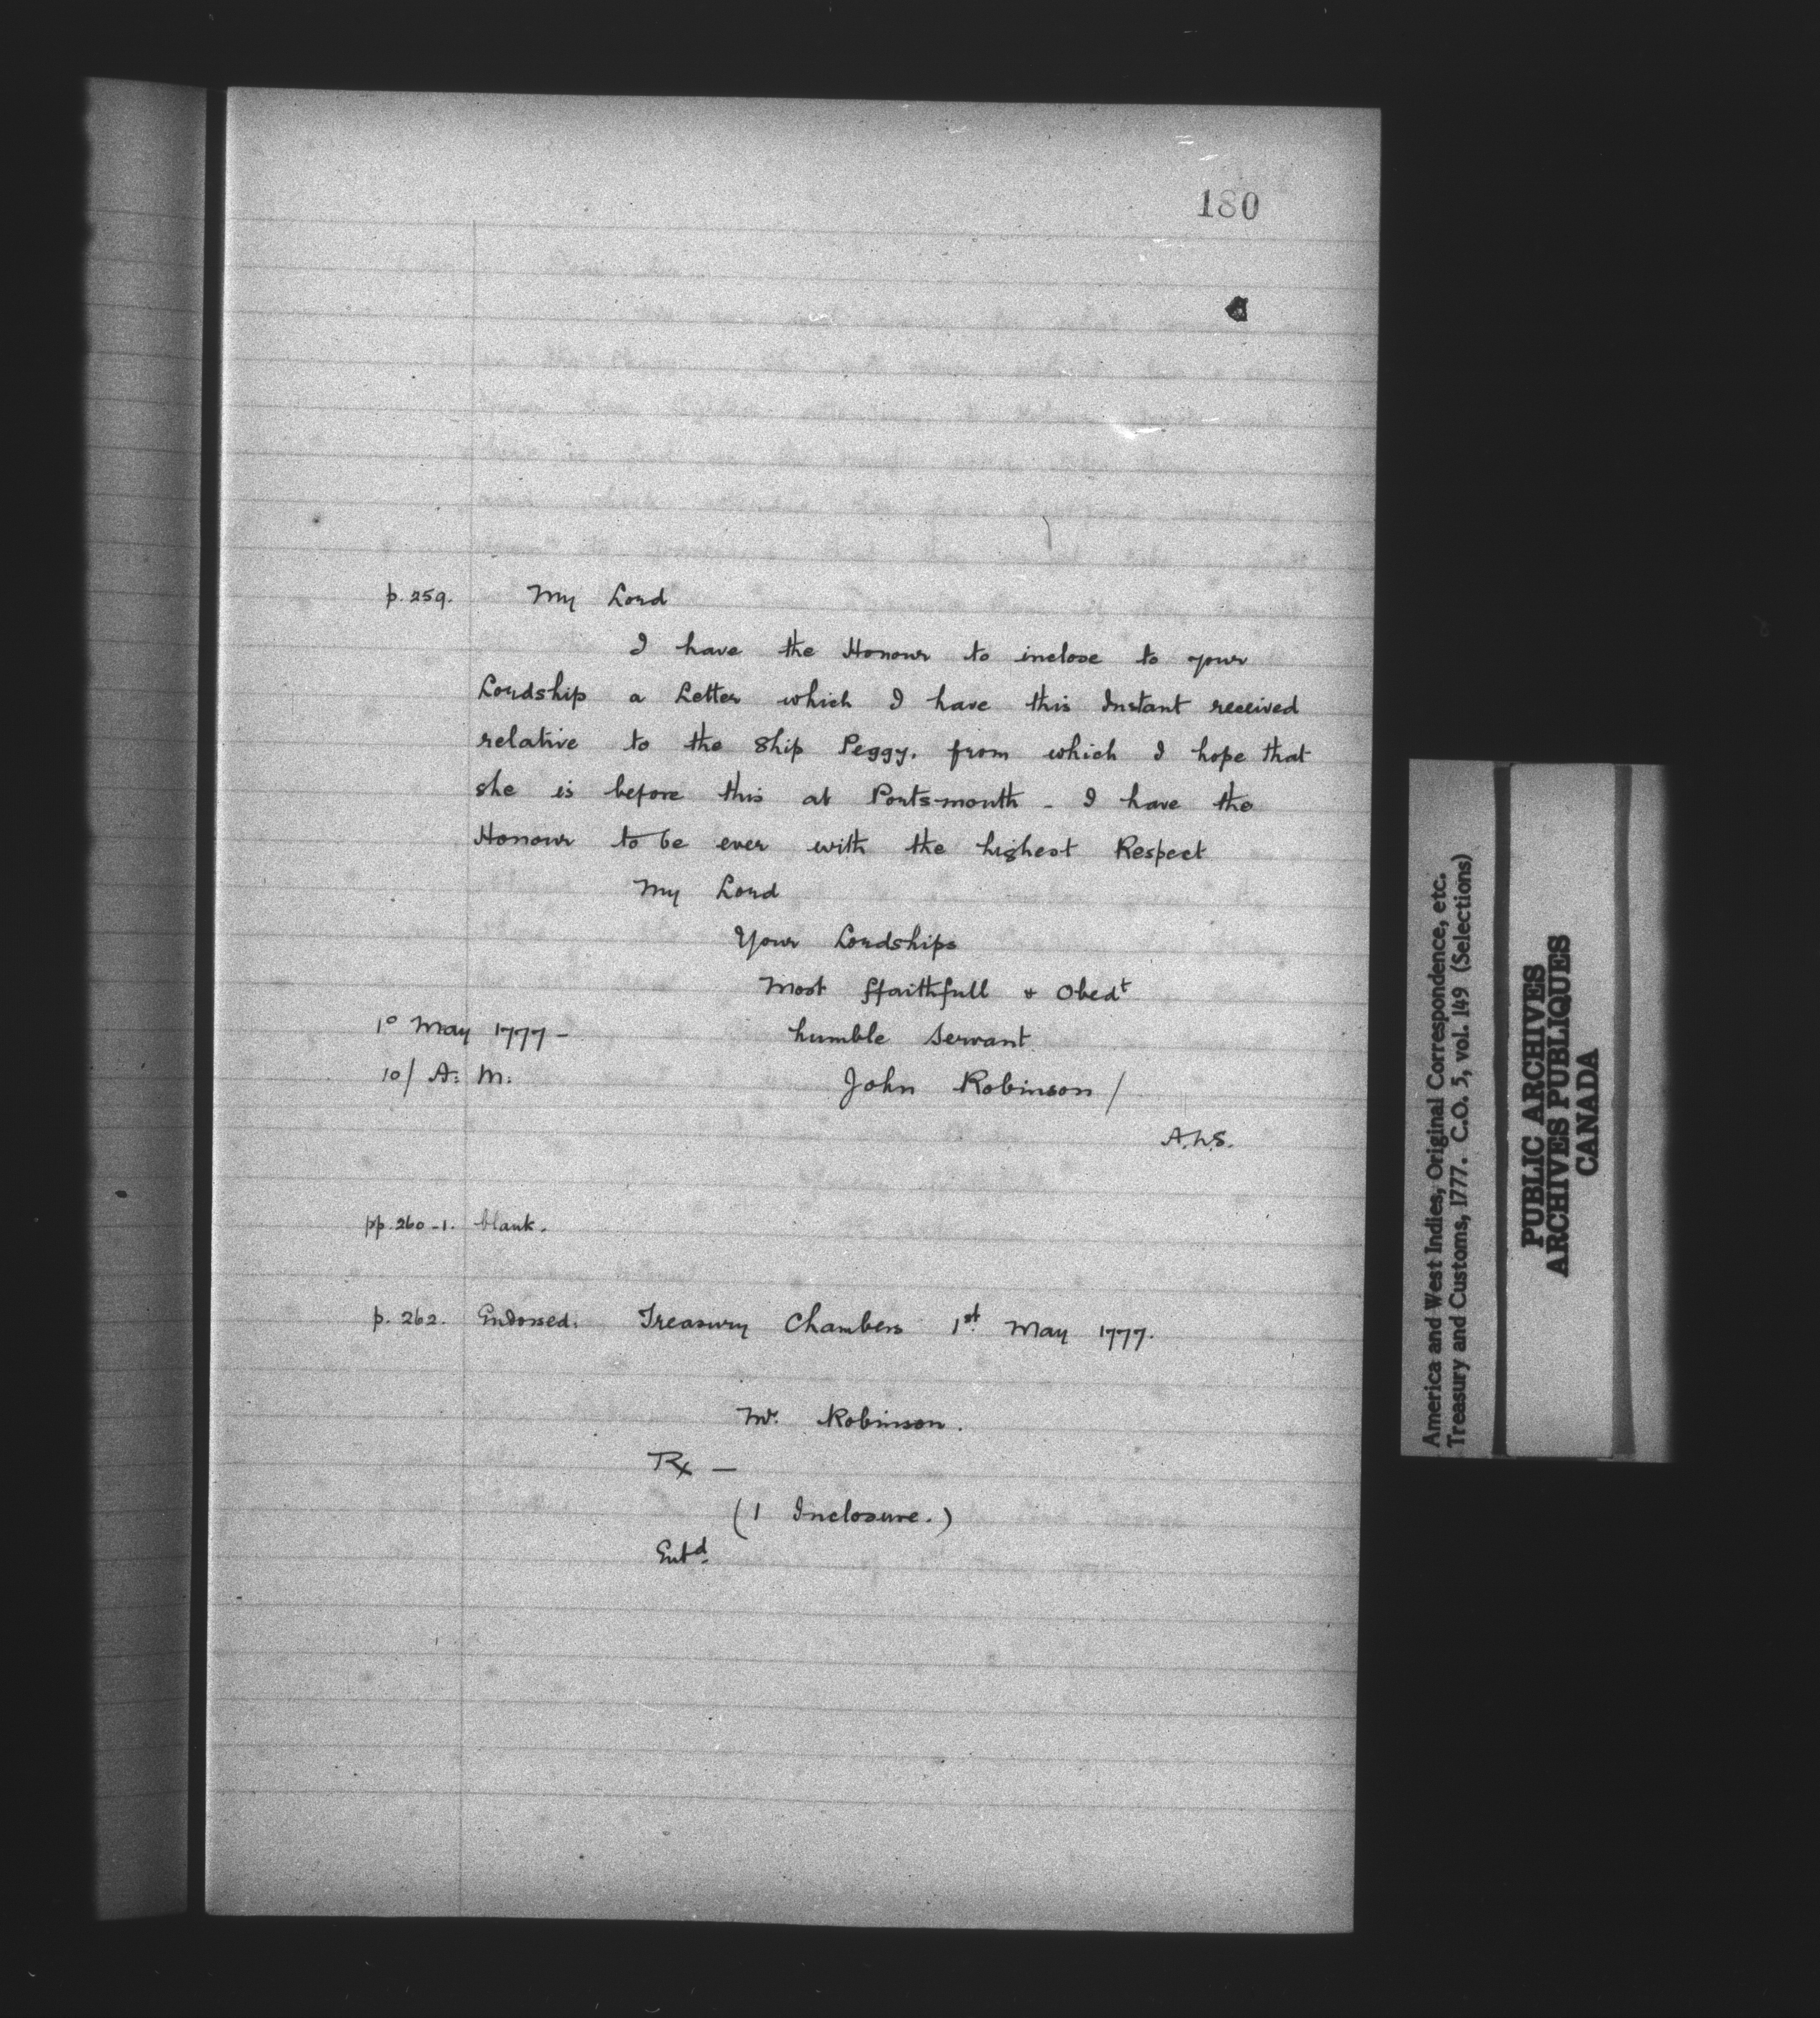 180
p. 259. My Lord
I have the Honour to inclose to your
Lordship a Letter which I have this Instant received
relative to the Ship Peggy, from which I hope that
she is before this at Portsmouth - I have the
Honour to be ever with the highest Respect
My Lord
Your Lordships
Most ffaithfull & Obedt
humble Servant
1o May 1777 -
10/ A: M:
John Robinson /
A.L.S.
pp. 260-1. blank.
p. 262. Endorsed: Treasury Chambers 1st May 1777.
Mr. Robinson.
Rx —
(1 Inclosure.)
Entd.
America and West Indies, Original Correspondence, etc.
Treasury and Customs, 1777. C.O. 5, vol. 149 (Selections)
PUBLIC ARCHIVES
ARCHIVES PUBLIQUES
CANADA